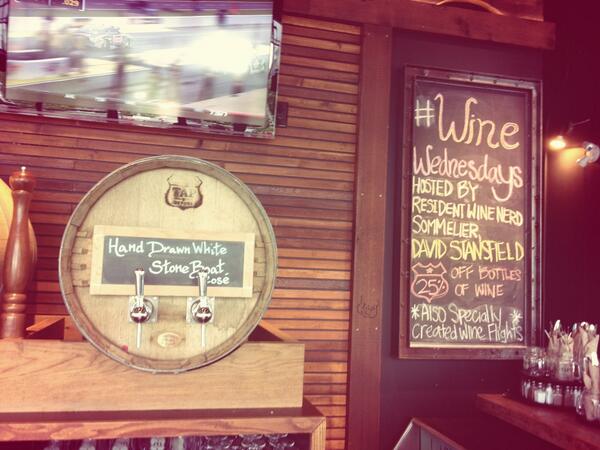 .029
TAP
Hand Drawn White
Stone Boat
Rosé
#Wine
Wednesdays
HOSTED BY
RESIDENT WINE NERD
SOMMELIER,
DAVID STANSFIELD
25% OFF BOTTLES
OF WINE
*Also Specially*
Created Wine Flights